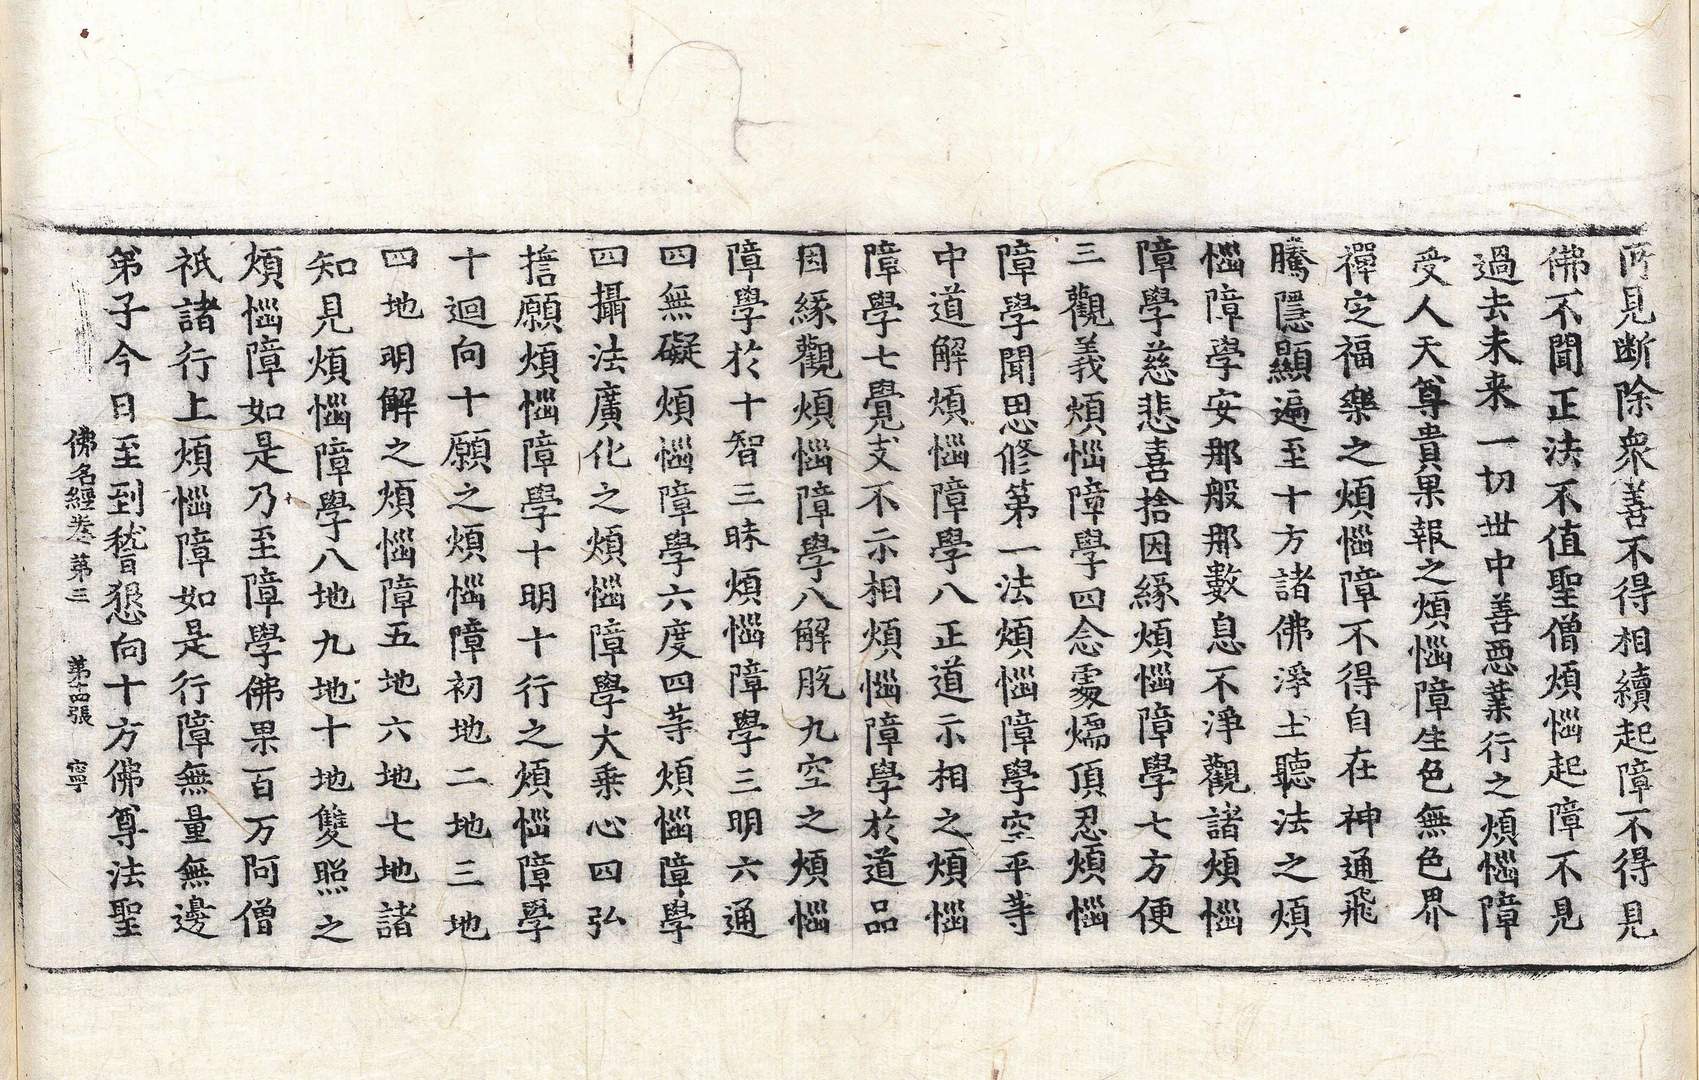 所見断除衆善不得相續起障不得見
佛不聞正法不值聖僧煩惱起障不見
過去未来一切丗中善惡業行之煩惱障
受人天尊貴果報之煩惱障生色無色界
禪㝎福樂之煩惱障不得自在神通飛
騰隱顯遍至十方諸佛淨土聽法之煩
惱障學安那般那數息不淨觀諸煩惱
障學慈悲喜捨因緣煩惱障學七方便
三觀義煩惱障學四念處煗頂忍煩惱
障學聞思修第一法煩惱障學空平等
中道解煩惱障學八正道示相之煩惱
障學七覺支不示相煩惱障學於道品
因緣觀煩惱障學八解脫九空之煩惱
障學於十智三昧煩惱障學三明六通
四無礙煩惱障學六度四等煩惱障學
四攝法廣化之煩惱障學大乗心四弘
擔願煩惱障學十明十行之煩惱障學
十迴向十願之煩惱障初地二地三地
四地明解之煩惱障五地六地七地諸
知見煩惱障學八地九地十地雙照之
煩惱障如是乃至障學佛果百万阿僧
祇諸行上煩惱障如是行障無量無邊
弟子今日至到稽懇向十方佛尊法聖
佛名經卷第三 第十四張 寧